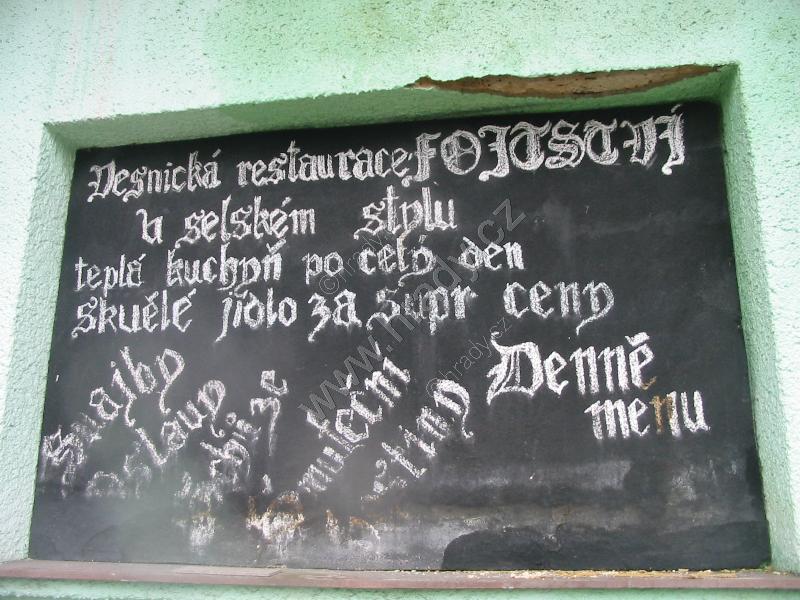 Vesnická restaurace FOJTSTVÍ
v selském stylu
teplá kuchyň po celý den
skvělé jídlo za supr ceny
Svajby
oslavy
smuteční
hostiny
Denně
menu
www.hrady.cz
©hrady.cz